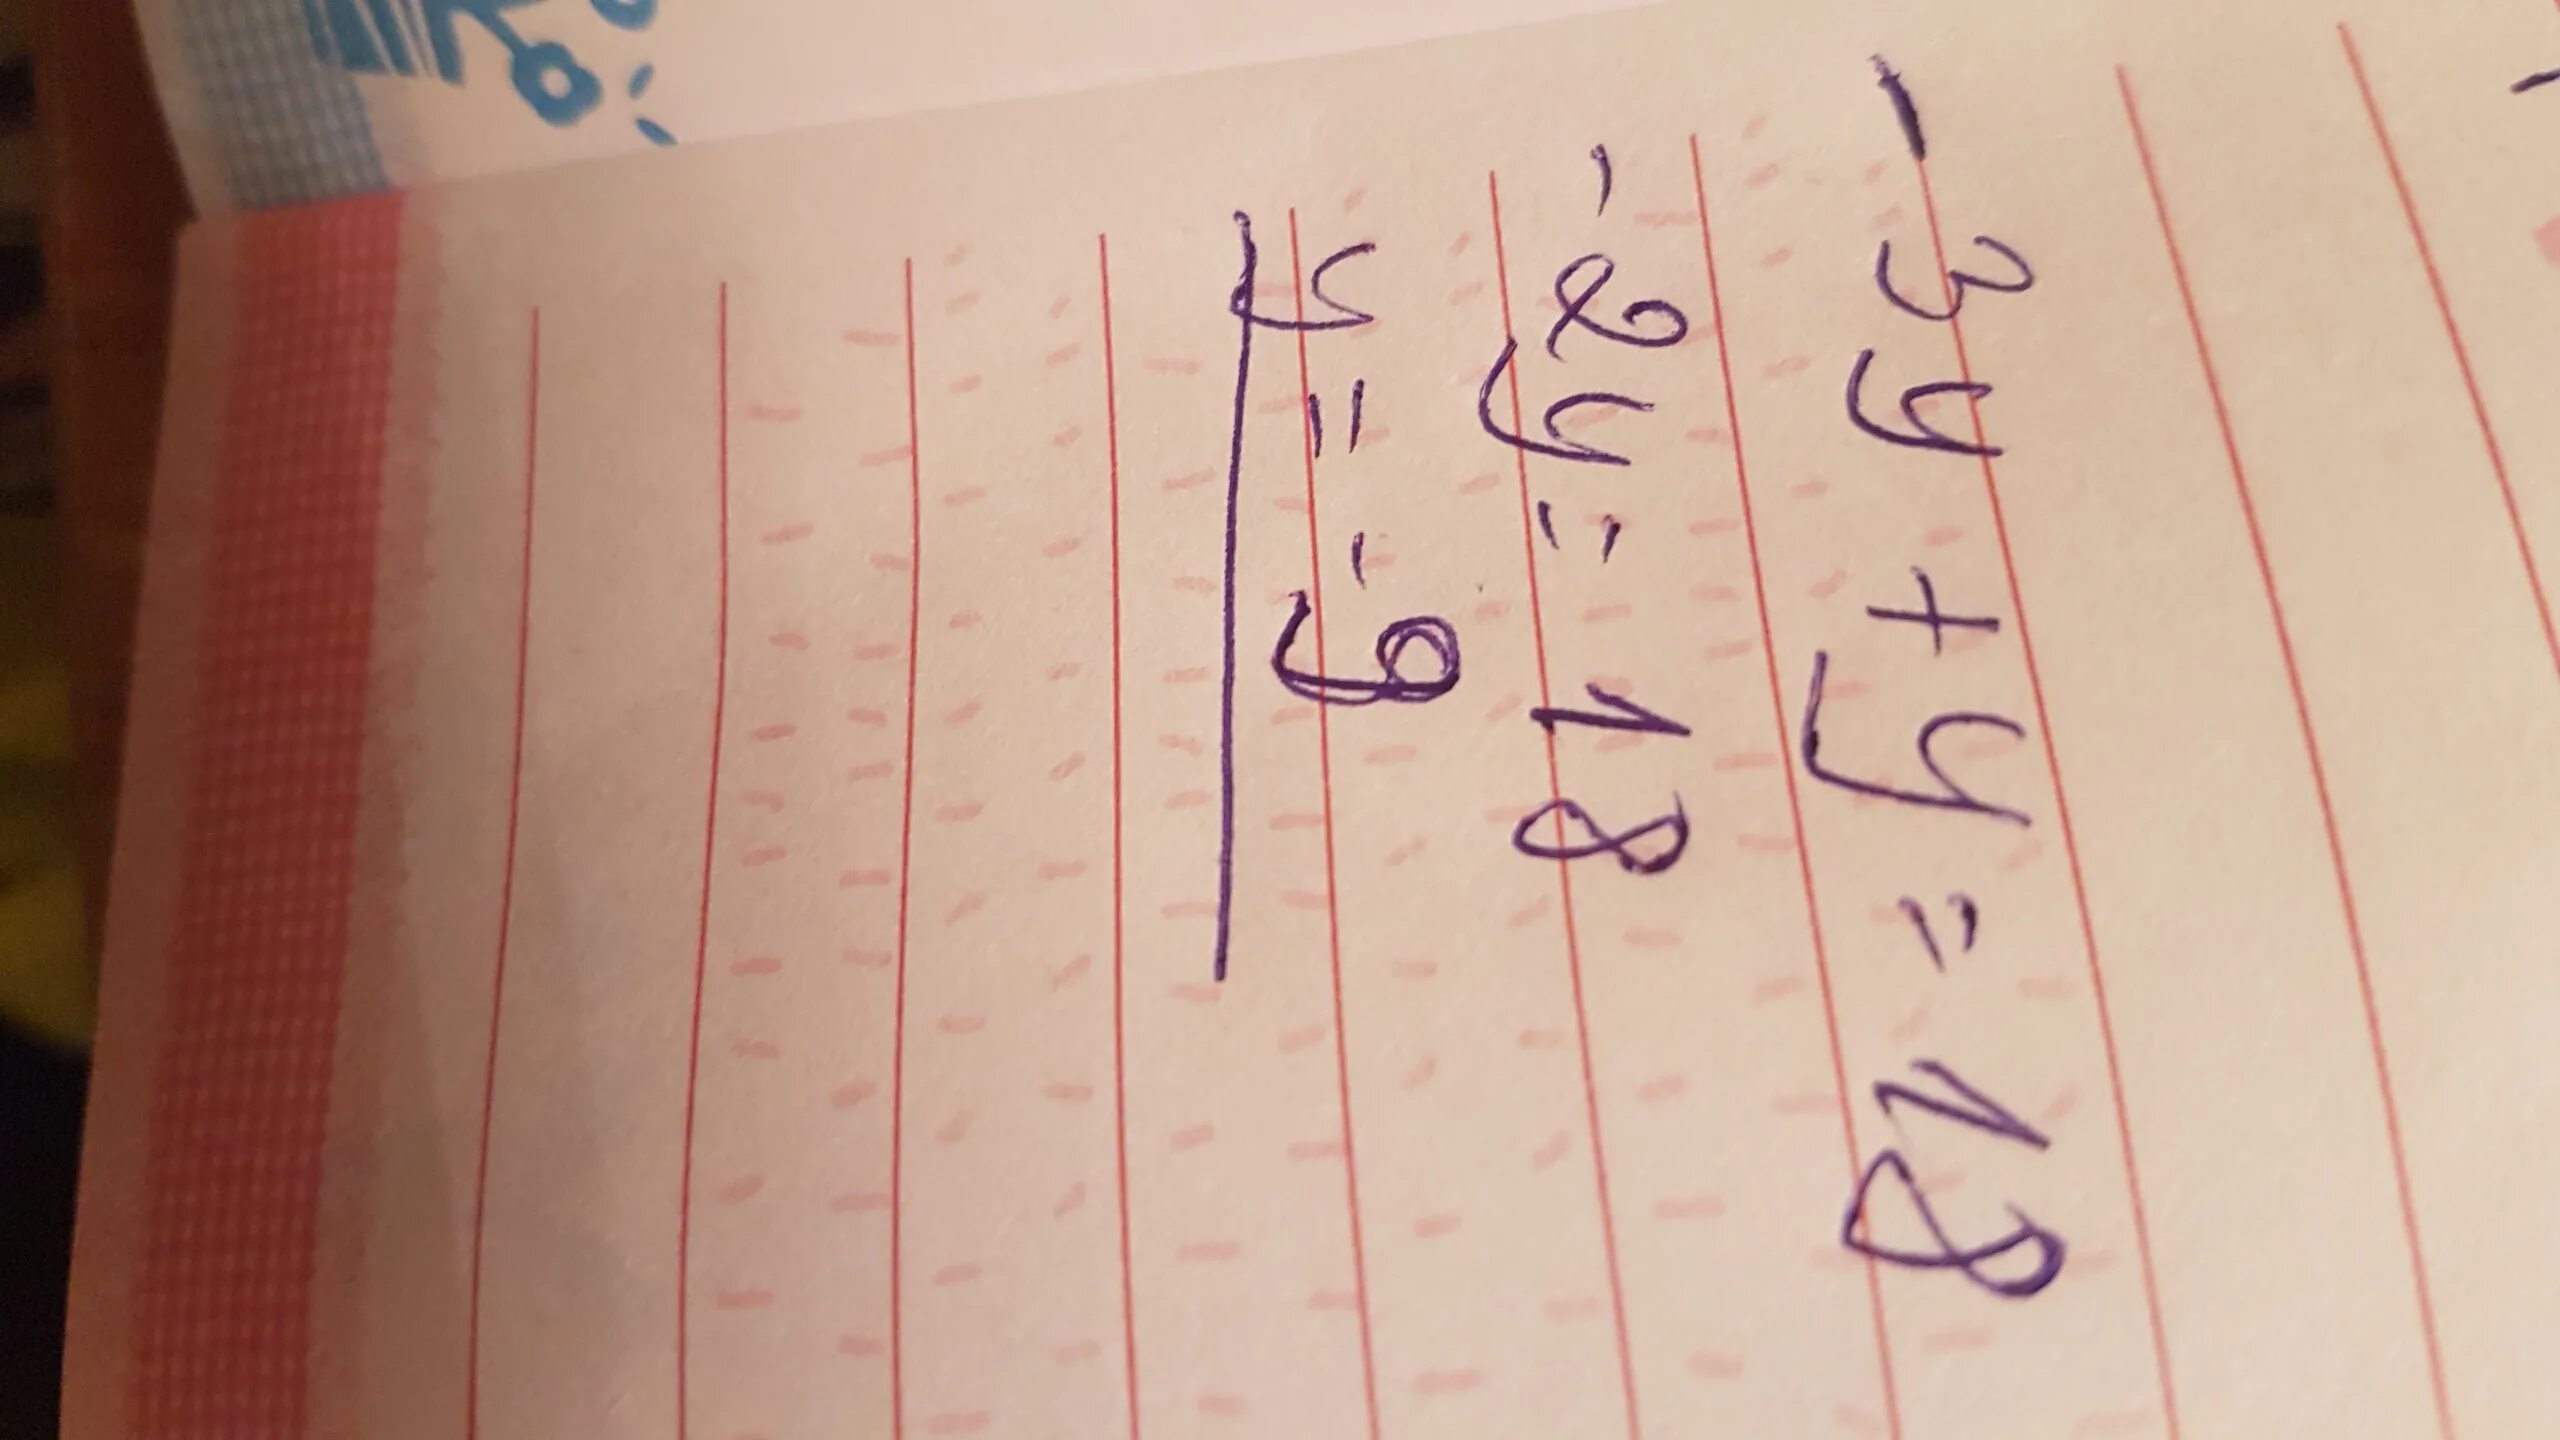 -3y + y = 18
-2y = 18
y = -9